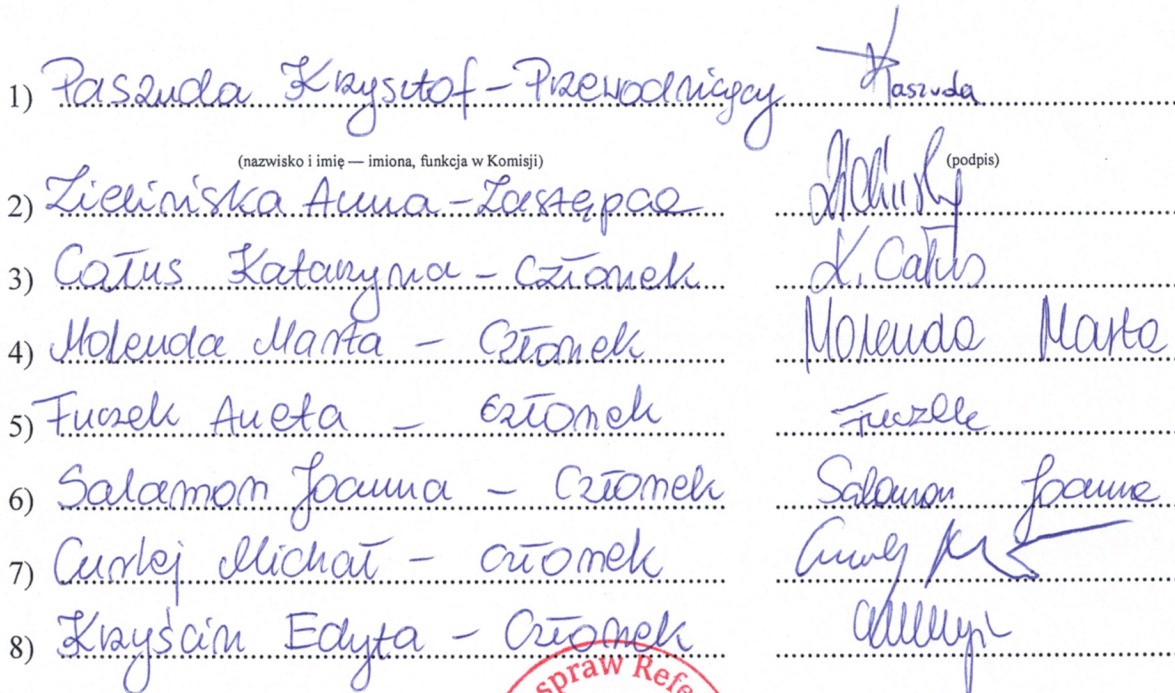 1) Paszuda Krzysztof - Przewodniczący Paszuda
(nazwisko i imię — imiona, funkcja w Komisji) (podpis)
2) Zielińska Anna - Zastępca
3) Całus Katarzyna - Członek K. Całus
4) Molenda Marta - Członek Molenda Marta
5) Fuczek Aneta - członek Fuczek
6) Salamon Joanna - Członek Salamon Joanna
7) Michał - członek
8) Krzyścin Edyta - Członek
spraw Refe